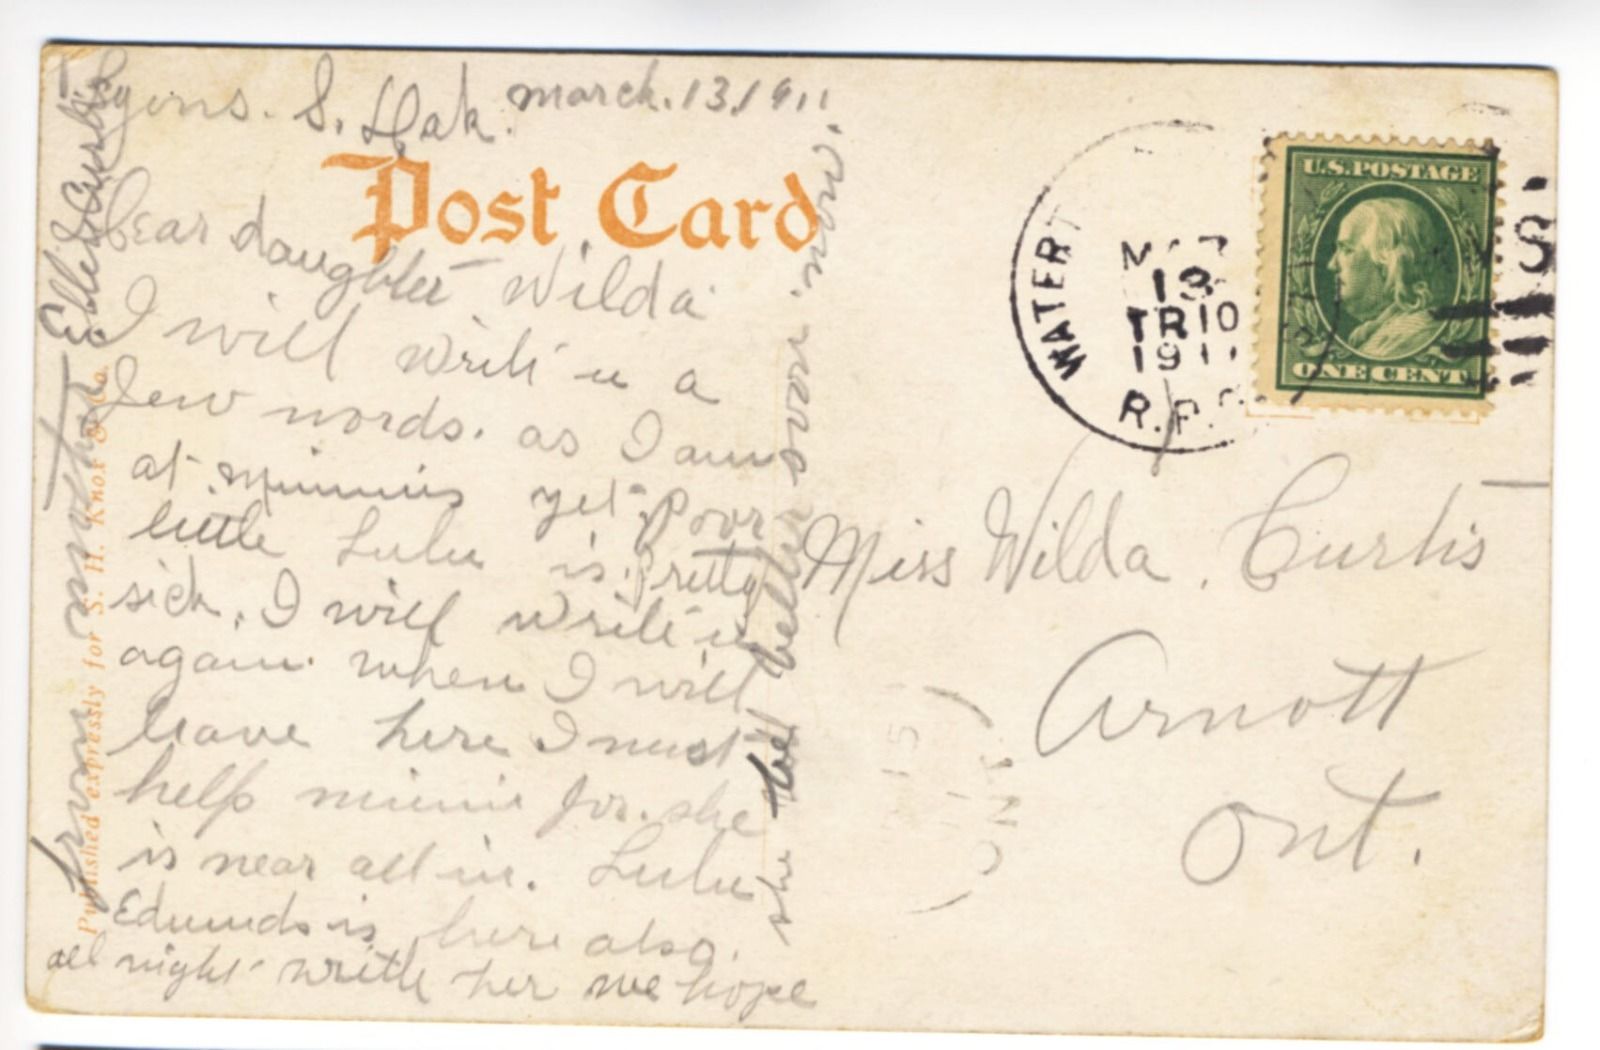 Lyons. S. Dak. march. 13, 1911
Post Card
Dear daughter Wilda
I will write u a
few words. as I am
at minnies yet. Poor
little Lulu is. Pretty
sick. I will write u
again. when I will
leave here I must
help minnie for. she
is near all in. Lulu
Edmunds is here also.
all night with her we hope
she will be better soon. now.
from mother Ellie Curtis
Published expressly for S. H. Knox & Co.
WATERT
MAR
13
TR 10
1911
R.P.O.
U.S. POSTAGE
ONE CENT
Miss Wilda. Curtis
Arnott
Ont.
15
ONT